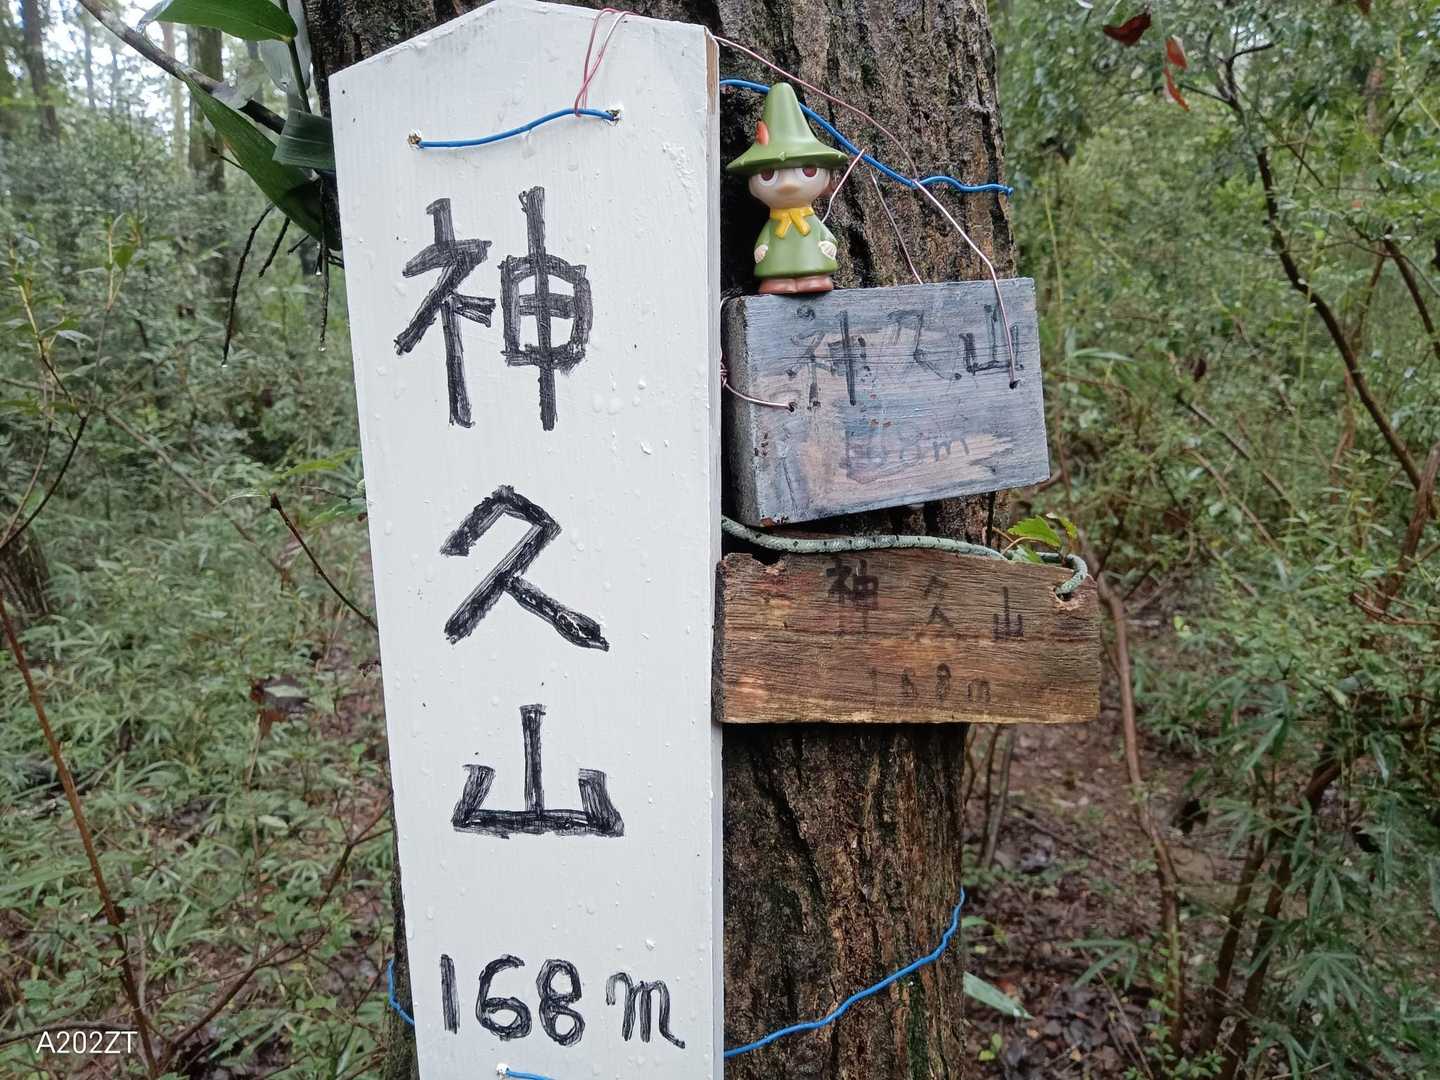 神
久
山
168m
神久山
168m
神久山
168m
A202ZT